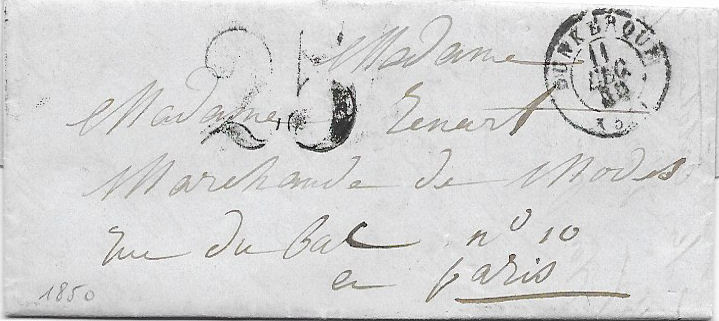 25
DUNKERQUE
11
DEC
Madame
Madame
Marchande de Modes
rue du Bac n° 10
en Paris
1850